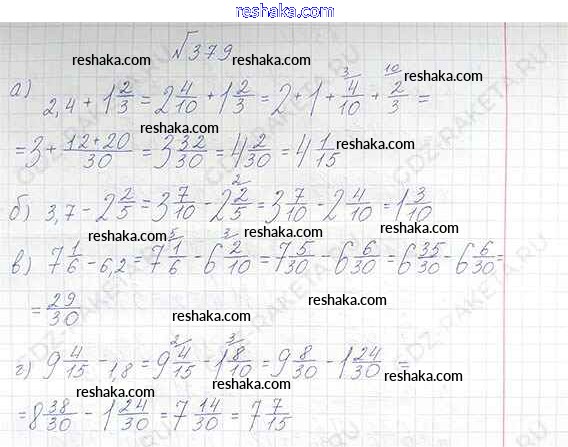 reshaka.com
№379
reshaka.com reshaka.com
а) 2,4 + 1 2/3 = 2 4/10 + 1 2/3 = 2 + 1 + 4/10 (3 + 2/3 (10 =
reshaka.com reshaka.com reshaka.com
= 3 + (12+20)/30 = 3 32/30 = 4 2/30 = 4 1/15
reshaka.com reshaka.com reshaka.com
б) 3,7 - 2 2/5 = 3 7/10 - 2 2/5 (2 = 3 7/10 - 2 4/10 = 1 3/10
reshaka.com reshaka.com reshaka.com
в) 7 1/6 - 6,2 = 7 1/6 (5 - 6 2/10 (3 = 7 5/30 - 6 6/30 = 6 35/30 - 6 6/30 =
reshaka.com reshaka.com reshaka.com
= 29/30
reshaka.com reshaka.com
г) 9 4/15 - 1,8 = 9 4/15 (2 - 1 8/10 (3 = 9 8/30 - 1 24/30 =
reshaka.com reshaka.com reshaka.com
= 8 38/30 - 1 24/30 = 7 14/30 = 7 7/15
reshaka.com reshaka.com reshaka.com
reshaka.com
GDZ-RAKETA.RU